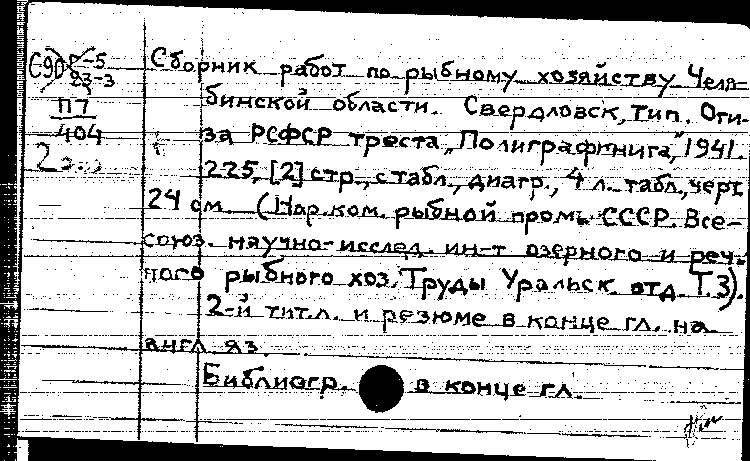 Сборник работ по рыбному хозяйству Челя-
бинской области. Свердловск, тип. Оги-
за РСФСР треста „Полиграфкнига", 1941.
225, [2] стр., с табл., диагр., 4 л. табл., черт.
24 см. (Нар. ком. рыбной пром. СССР. Все-
союз. научно-исслед. ин-т озерного и реч-
ного рыбного хоз. Труды Уральск. отд. Т. 3).
2-й тит. л. и резюме в конце гл. на
англ. яз.
Библиогр. в конце гл.
П7
404